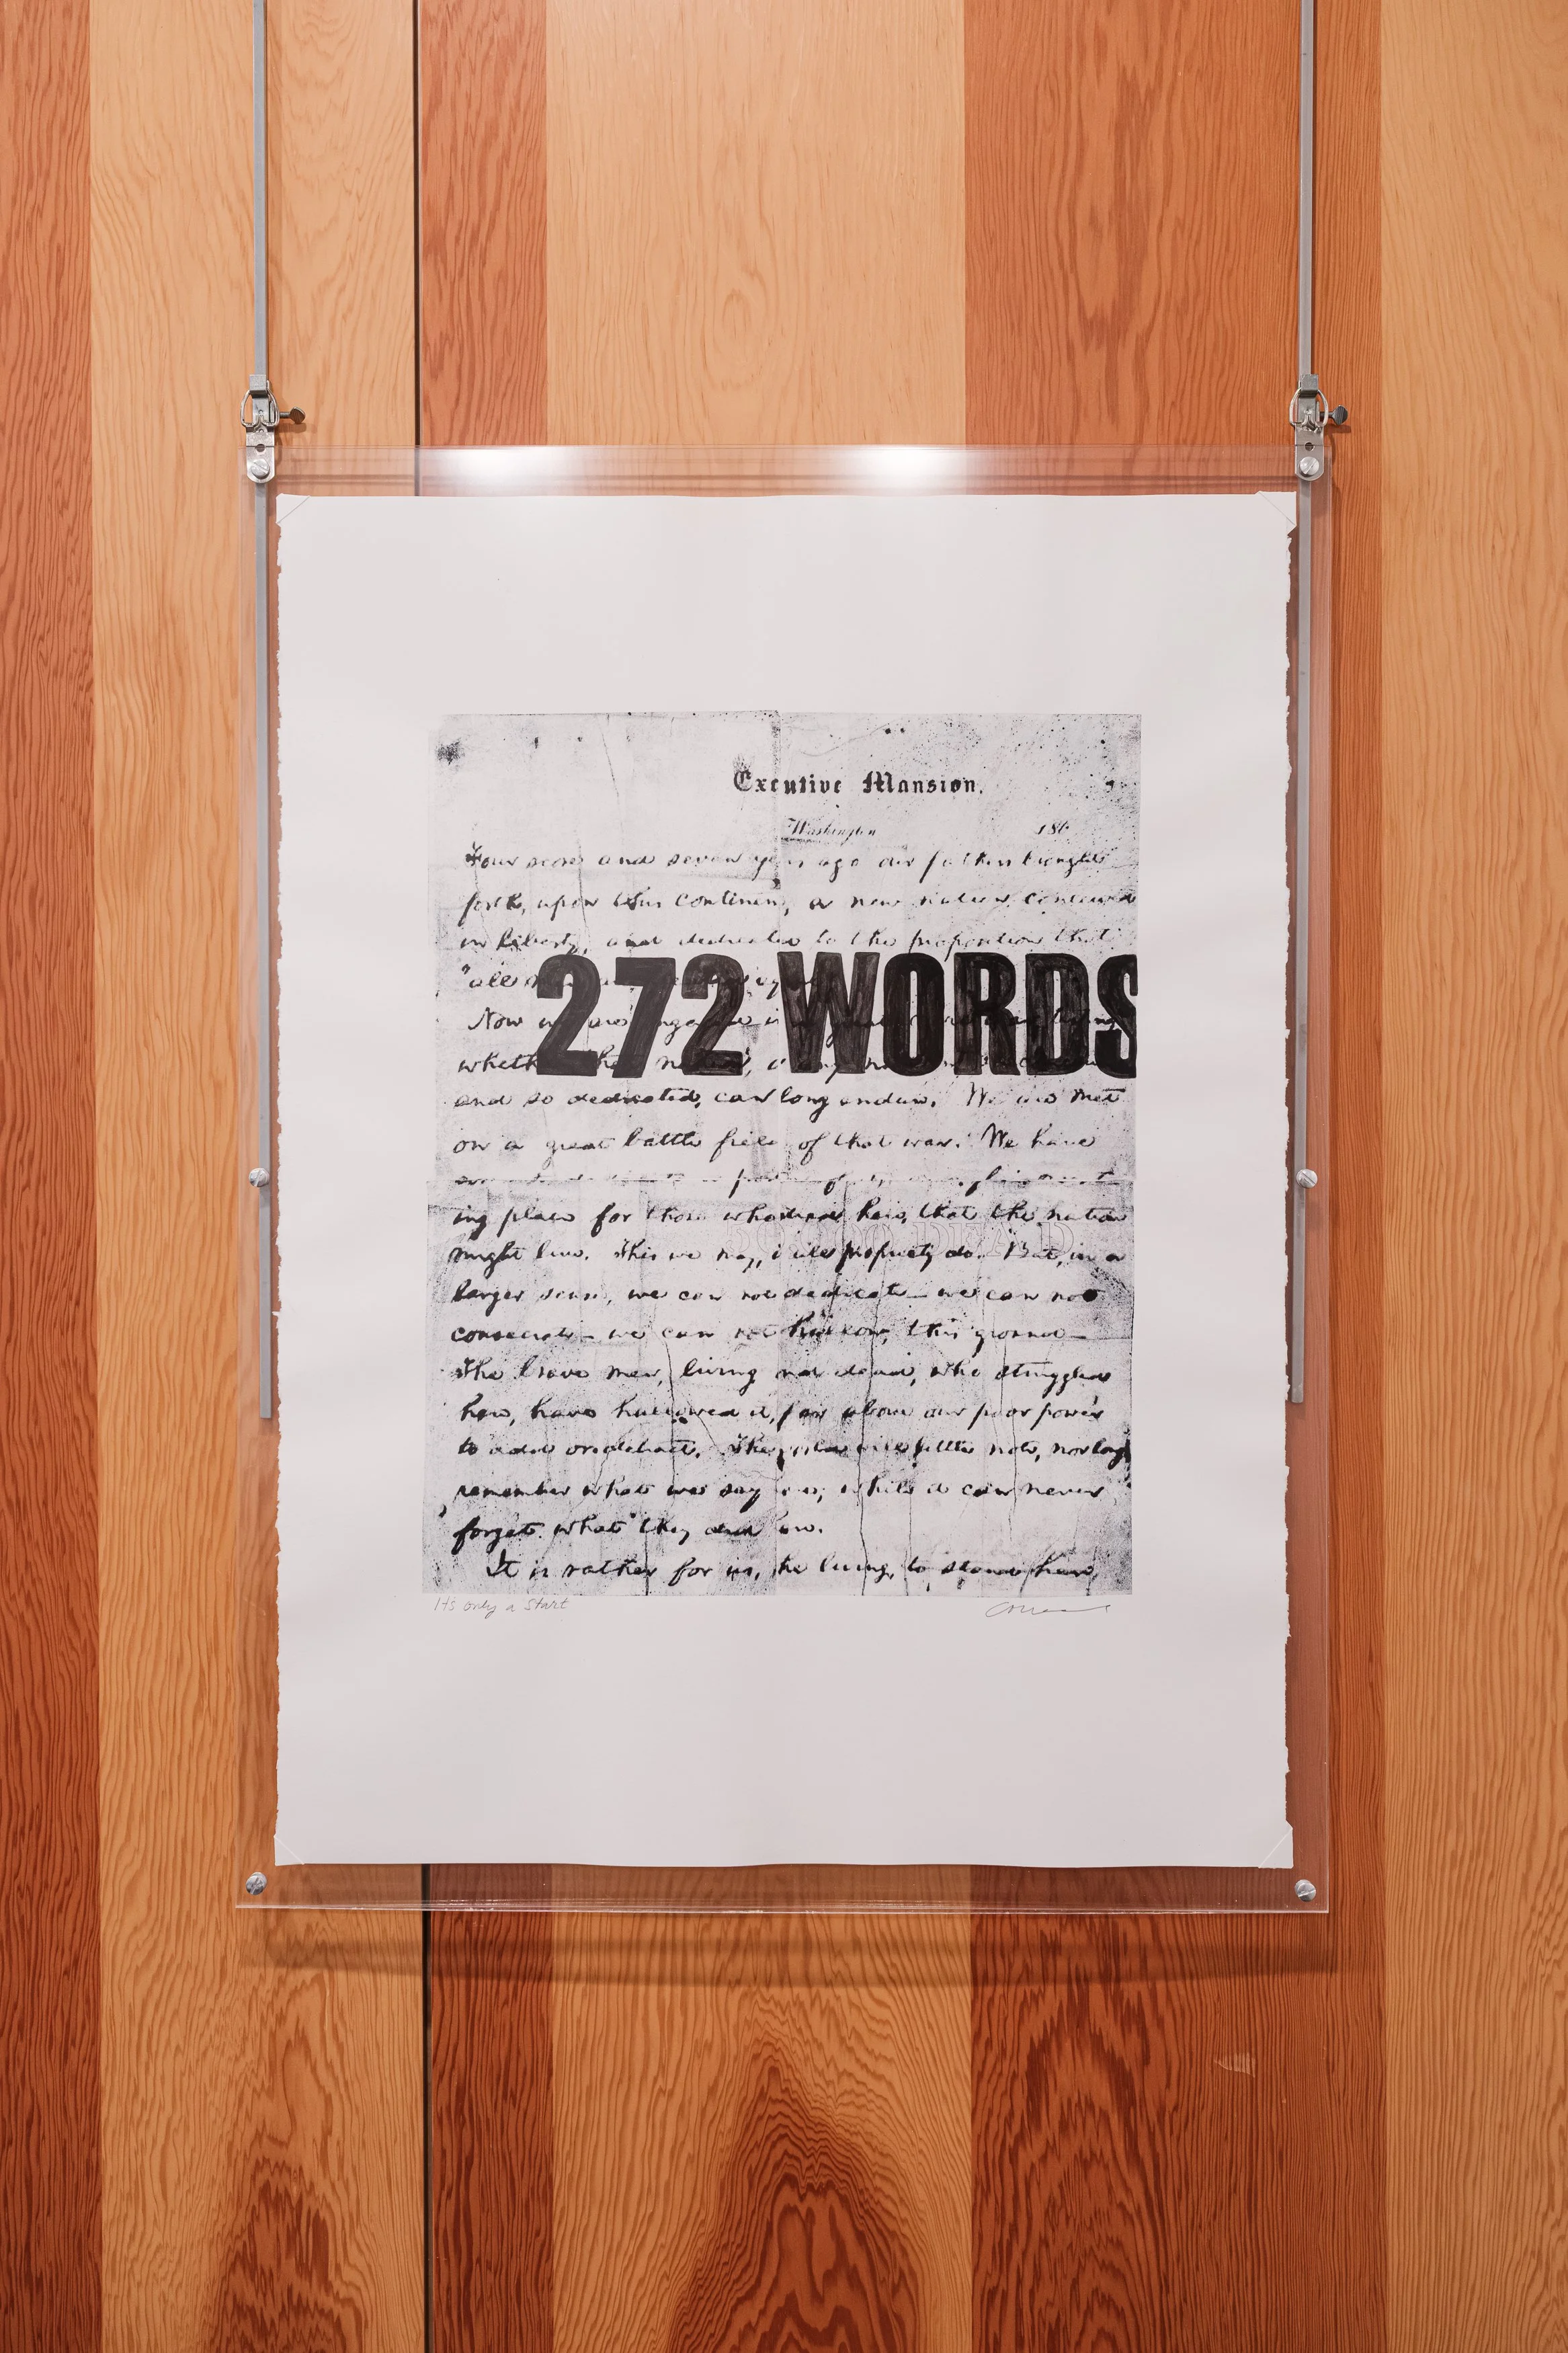 Executive Mansion.
Washington 186
Four score and seven years ago our fathers brought
forth, upon this continent, a new nation, conceived
in liberty, and dedicated to the proposition that
"all
272 WORDS
Now we are engaged in
whether
and so dedicated, can long endure. We are met
on a great battle field of that war. We have
ing place for those who died here, that the nation
might live. This we may, in all propriety do. But, in a
larger sense, we can not dedicate — we can not
consecrate — we can not hallow, this ground —
The brave men, living and dead, who struggled
here, have hallowed it, far above our poor power
to add or detract. The world will little note, nor long
remember what we say here; while it can never
forget what they did here.
It is rather for us, the living, to stand here,
Its only a Start